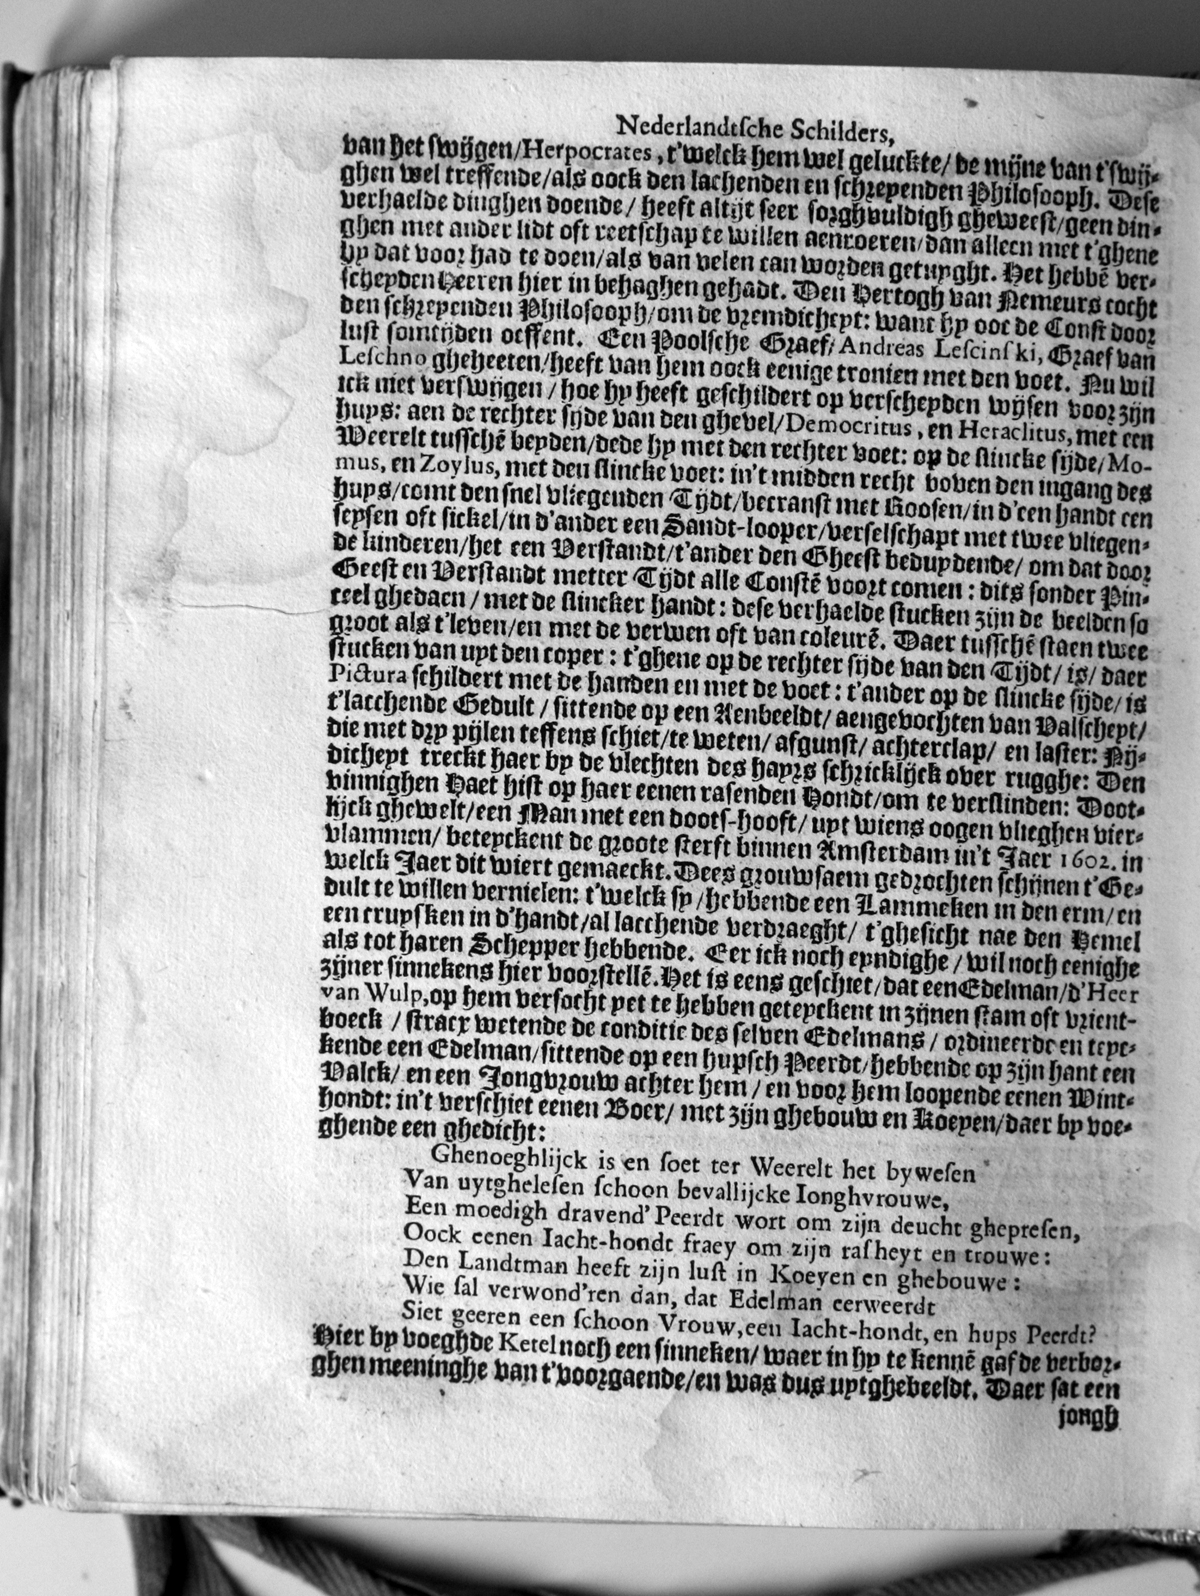 Nederlandtsche Schilders,
van het swijgen/Herpocrates, t'welck hem wel geluckte/ de mijne van t'swij-
ghen wel treffende/als oock den lachenden en schreyenden Philosooph. Dese
verhaelde dinghen doende/ heeft altijt seer sorghvuldigh gheweest/geen din-
ghen met ander lidt oft reetschap te willen aenroeren/dan alleen met t'ghene
hy dat voor had te doen/als van velen can worden getuyght. Het hebbē ver-
scheyden Heeren hier in behaghen gehadt. Den Hertogh van Nemeurs cocht
den schreyenden Philosooph/om de vremdicheyt: want hy ooc de Const door
lust somtijden oeffent. Een Poolsche Graef/Andreas Lescinski, Graef van
Leschno gheheeten/heeft van hem oock eenige tronien met den voet. Nu wil
ick niet verswijgen/ hoe hy heeft geschildert op verscheyden wijsen voor zijn
huys: aen de rechter sijde van den ghevel/Democritus, en Heraclitus, met een
Weerelt tusschē beyden/dede hy met den rechter voet: op de slincke sijde/Mo-
mus, en Zoylus, met den slincke voet: in't midden recht boven den ingang des
huys/comt den snel vliegenden Tijdt/becranst met Roosen/in d'een handt een
seysen oft sickel/in d'ander een Sandt-looper/verselschapt met twee vliegen-
de kinderen/het een Verstandt/t'ander den Gheest beduydende/ om dat door
Geest en Verstandt metter Tijdt alle Constē voort comen: dits sonder Pin-
ceel ghedaen/ met de slincker handt: dese verhaelde stucken zijn de beelden so
groot als t'leven/en met de verwen oft van coleurē. Daer tusschē staen twee
stucken van uyt den coper: t'ghene op de rechter sijde van den Tijdt/ is/ daer
Pictura schildert met de handen en met de voet: t'ander op de slincke sijde/ is
t'lacchende Gedult/ sittende op een Aenbeeldt/ aengevochten van Valscheyt/
die met dry pijlen teffens schiet/te weten/ afgunst/ achterclap/ en laster: Nij-
dicheyt treckt haer by de vlechten des hayrs schricklijck over rugghe: Den
vinnighen Haet hist op haer eenen rasenden Hondt/om te verslinden: Doot-
lijck ghewelt/een Man met een doots-hooft/ uyt wiens oogen vlieghen vier-
vlammen/ beteyckent de groote sterft binnen Amsterdam in't Jaer 1602. in
welck Jaer dit wiert gemaeckt. Dees grouwsaem gedrochten schijnen t'Ge-
dult te willen vernielen: t'welck sy/hebbende een Lammeken in den erm/en
een cruysken in d'handt/al lacchende verdraeght/ t'ghesicht nae den Hemel
als tot haren Schepper hebbende. Eer ick noch eyndighe/ wil noch eenighe
zijner sinnekens hier voorstellē. Het is eens geschiet/dat een Edelman/d'Heer
van Wulp,op hem versocht yet te hebben geteyckent in zijnen stam oft vrient-
boeck/ stracx wetende de conditie des selven Edelmans/ ordineerde en teyc-
kende een Edelman/sittende op een hupsch Peerdt/hebbende op zijn hant een
Valck/ en een Jongvrouw achter hem/ en voor hem loopende eenen Wint-
hondt: in't verschiet eenen Boer/ met zijn ghebouw en Koeyen/daer by voe-
ghende een ghedicht:
Ghenoeghlijck is en soet ter Weerelt het bywesen
Van uytghelesen schoon bevallijcke Ionghvrouwe,
Een moedigh dravend' Peerdt wort om zijn deucht ghepresen,
Oock eenen Iacht-hondt fraey om zijn rasheyt en trouwe:
Den Landtman heeft zijn lust in Koeyen en ghebouwe:
Wie sal verwond'ren dan, dat Edelman eerweerdt
Siet geeren een schoon Vrouw,een Iacht-hondt,en hups Peerdt?
Hier by voeghde Ketel noch een sinneken/ waer in hy te kennē gaf de verbor-
ghen meeninghe van t'voorgaende/en was dus uytghebeeldt. Daer sat een
jongh